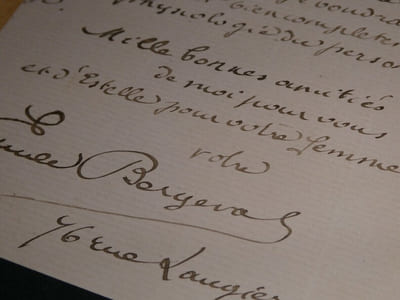 bien complète
physiologie du perso
Mille bonnes amitiés
de moi pour vous
et d'Estelle pour votre femme
votre
Bergerat
76 rue Laugier